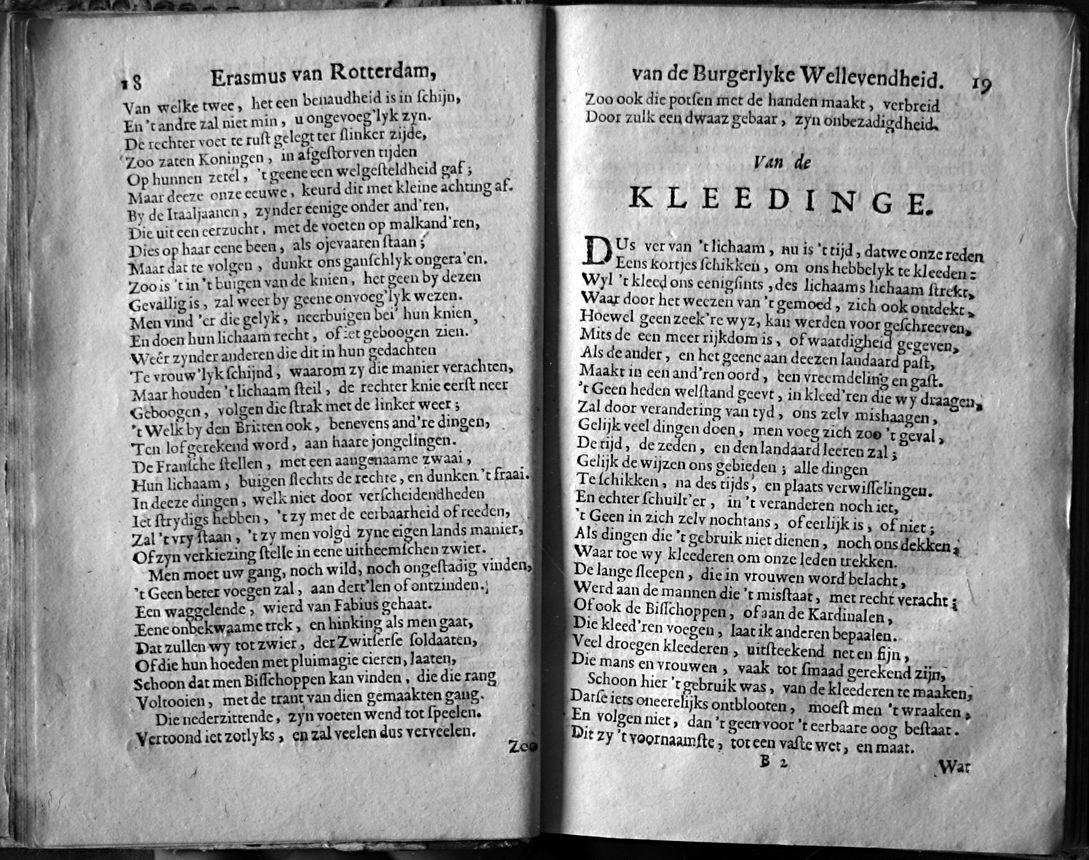 18 Erasmus van Rotterdam,
Van welke twee, het een benaudheid is in ſchijn,
En 't andre zal niet min, u ongevoeg'lyk zyn.
De rechter voet te ruſt gelegt ter ſlinker zijde,
Zoo zaten Koningen, in afgeſtorven tijden
Op hunnen zetel, 't geene een welgeſteldheid gaf;
Maar deeze onze eeuwe, keurd dit met kleine achting af.
By de Itaaljaanen, zynder eenige onder and'ren,
Die uit een eerzucht, met de voeten op malkand'ren,
Dies op haar eene been, als ojevaaren ſtaan;
Maar dat te volgen, dunkt ons ganſchlyk ongera'en.
Zoo is 't in 't buigen van de knien, het geen by dezen
Gevallig is, zal weer by geene onvoeg'lyk wezen.
Men vind 'er die gelyk, neerbuigen bei' hun knien,
En doen hun lichaam recht, of iet geboogen zien.
Weêr zynder anderen die dit in hun gedachten
Te vrouw'lyk ſchijnd, waarom zy die manier verachten,
Maar houden 't lichaam ſteil, de rechter knie eerſt neer
Geboogen, volgen die ſtrak met de linker weer;
't Welk by den Britten ook, benevens and're dingen,
Ten lof gerekend word, aan haare jongelingen.
De Franſche ſtellen, met een aangenaame zwaai,
Hun lichaam, buigen ſlechts de rechte, en dunken 't fraai.
In deeze dingen, welk niet door verſcheidendheden
Iet ſtrydigs hebben, 't zy met de eerbaarheid of reeden,
Zal 't vry ſtaan, 't zy men volgd zyne eigen lands manier,
Of zyn verkiezing ſtelle in eene uitheemſchen zwier.
Men moet uw gang, noch wild, noch ongeſtadig vinden,
't Geen beter voegen zal, aan dert'len of ontzinden.
Een waggelende, wierd van Fabius gehaat.
Eene onbekwaame trek, en hinking als men gaat,
Dat zullen wy tot zwier, der Zwitſerſe ſoldaaten,
Of die hun hoeden met pluimagie cieren, laaten,
Schoon dat men Biſſchoppen kan vinden, die die rang
Voltooien, met de trant van dien gemaakten gang.
Die nederzittende, zyn voeten wend tot ſpeelen.
Vertoond iet zotlyks, en zal veelen dus verveelen.
Zoo
van de Burgerlyke Wellevendheid. 19
Zoo ook die potſen met de handen maakt, verbreid
Door zulk een dwaaz gebaar, zyn onbezadigdheid.
Van de
KLEEDINGE.
DUs ver van 't lichaam, nu is 't tijd, datwe onze reden
Eens kortjes ſchikken, om ons hebbelyk te kleeden:
Wyl 't kleed ons eenigſints, des lichaams lichaam ſtrekt,
Waar door het weezen van 't gemoed, zich ook ontdekt,
Hoewel geen zeek're wyz, kan werden voor geſchreeven,
Mits de een meer rijkdom is, of waardigheid gegeven,
Als de ander, en het geene aan deezen landaard paſt,
Maakt in een and'ren oord, een vreemdeling en gaſt.
't Geen heden welſtand geevt, in kleed'ren die wy draagen,
Zal door verandering van tyd, ons zelv mishaagen,
Gelijk veel dingen doen, men voeg zich zoo 't geval,
De tijd, de zeden, en den landaard leeren zal;
Gelijk de wijzen ons gebieden; alle dingen
Te ſchikken, na des tijds, en plaats verwiſſelingen.
En echter ſchuilt'er, in 't veranderen noch iet,
't Geen in zich zelv nochtans, of eerlijk is, of niet;
Als dingen die 't gebruik niet dienen, noch ons dekken,
Waar toe wy kleederen om onze leden trekken.
De lange ſleepen, die in vrouwen word belacht,
Werd aan de mannen die 't misſtaat, met recht veracht;
Of ook de Biſſchoppen, of aan de Kardinalen,
Die kleed'ren voegen, laat ik anderen bepaalen.
Veel droegen kleederen, uitſteekend net en fijn,
Die mans en vrouwen, vaak tot ſmaad gerekend zijn,
Schoon hier 't gebruik was, van de kleederen te maaken,
Datſe iets oneerelijks ontblooten, moeſt men 't wraaken,
En volgen niet, dan 't geen voor 't eerbaare oog beſtaat.
Dit zy 't voornaamſte, tot een vaſte wet, en maat.
B 2
Wat